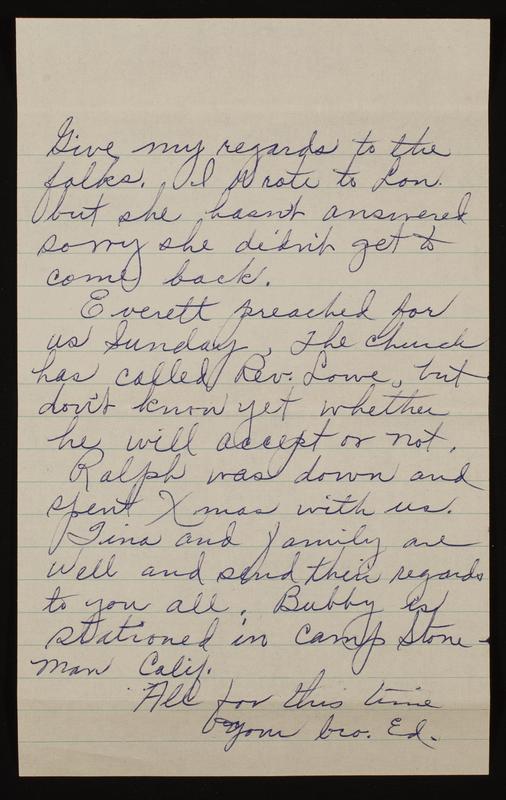 Give my regards to the
folks. I wrote to Lon.
but she hasn't answered
sorry she didn't get to
come back.
Everett preached for
us Sunday, The church
has called Rev. Lowe, but
don't know yet whether
he will accept or not.
Ralph was down and
spent Xmas with us.
Tina and family are
well and send thier regards
to you all. Bubby is
stationed in Camp Stone-
man Calif.
All for this time
Your bro. Ed.